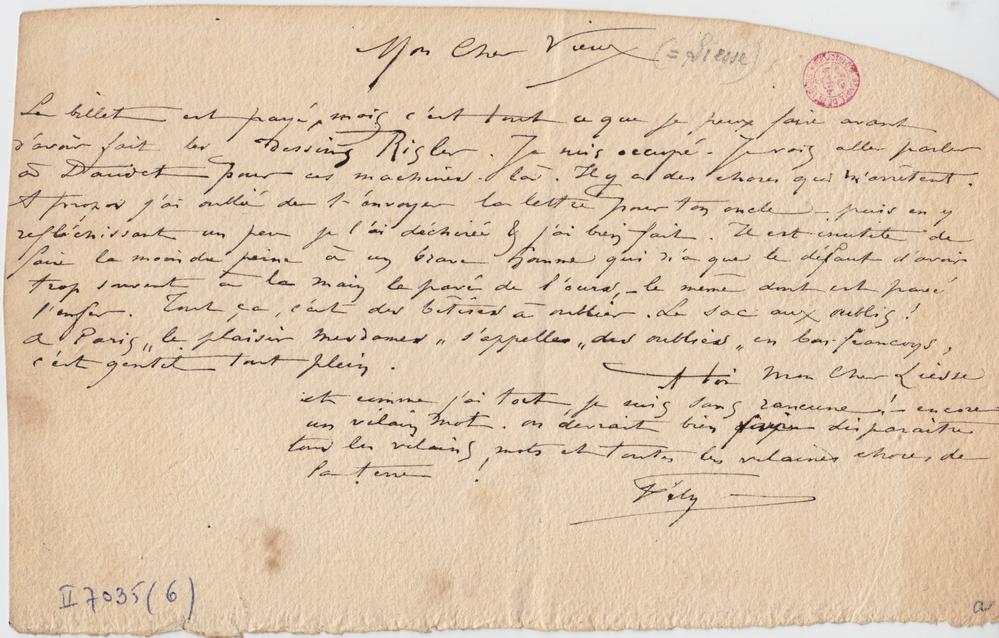 Mon Cher Vieux (= Liesse)
Le billet est payé, mais c'est tout ce que je peux faire avant
d'avoir fait les Dessins Rigler. Je suis occupé. Je vais aller parler
à Daudet pour ces machines-là. Il y a des choses qui m'arrêtent.
A propos j'ai oublié de t'envoyer la lettre pour ton oncle - puis en y
refléchissant un peu je l'ai déchirée & j'ai bien fait. Il est inutile de
faire la moindre peine à un brave homme qui n'a que le défaut d'avoir
trop souvent à la main le pavé de l'ours, - le même dont est pavé
l'enfer. Tout ça, c'est des bêtises à oublier. Le sac aux oublis!
a Paris, "le plaisir mesdames" s'appelle "des oublies" en bas-françoys,
c'est gentil tout plein.
A toi Mon Cher Liesse
et comme j'ai tort, je suis sans rancune! - encore
un vilain mot. on devrait bien faire disparaître
tous les vilains mots et toutes les vilaines choses de
la terre!
Fély
II 7035 (6)
a